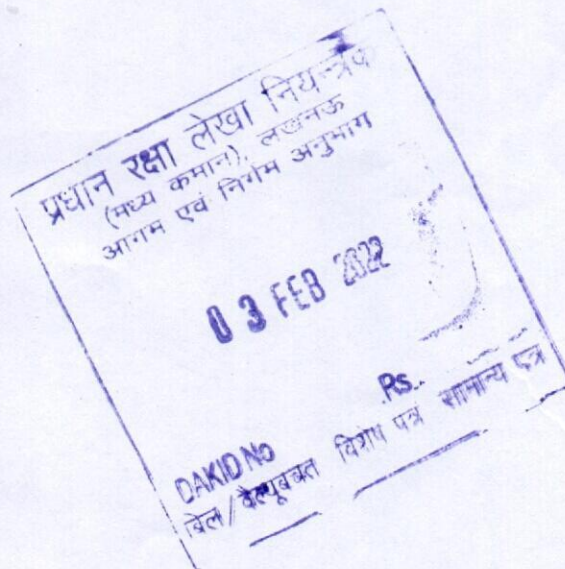 प्रधान रक्षा लेखा नियन्त्रक
(मध्य कमान), लखनऊ
आगम एवं निर्गम अनुभाग
03 FEB 2022
Rs.
DAKID No
बिल/वैल्यूबबल विशेष पत्र सामान्य पत्र